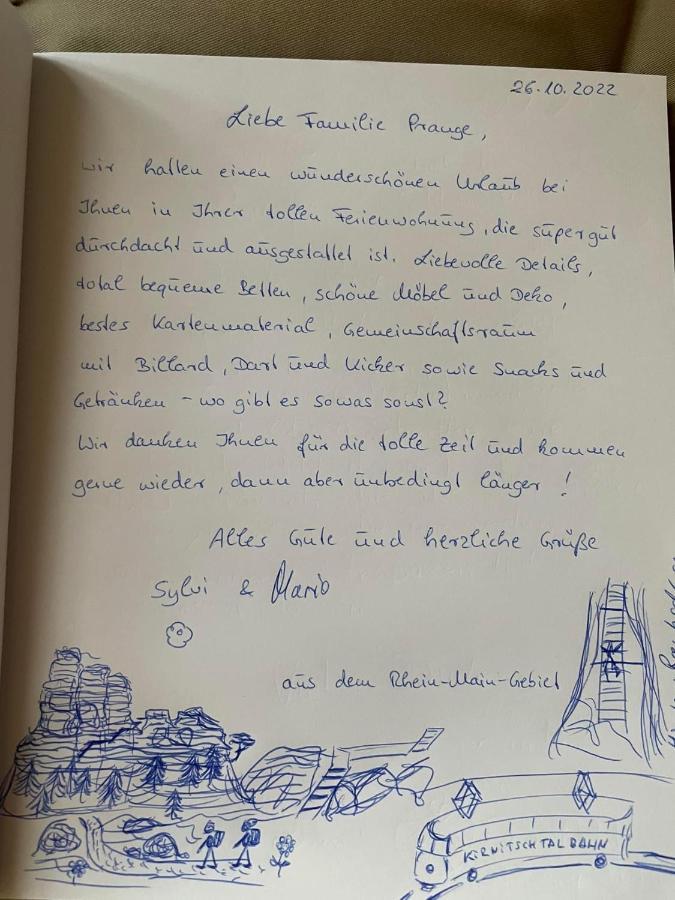 26.10.2022
Liebe Familie Prange,
wir hatten einen wunderschönen Urlaub bei
Ihnen in Ihrer tollen Ferienwohnung, die supergut
durchdacht und ausgestattet ist. Liebevolle Details,
total bequeme Betten, schöne Möbel und Deko,
bestes Kartenmaterial, Gemeinschaftsraum
mit Billard, Dart und Kicker sowie Snacks und
Getränken - wo gibt es sowas sonst?
Wir danken Ihnen für die tolle Zeit und kommen
gerne wieder, dann aber unbedingt länger!
Alles Gute und herzliche Grüße
Sylvi & Mario
aus dem Rhein-Main-Gebiet
KIRNITSCHTALBAHN